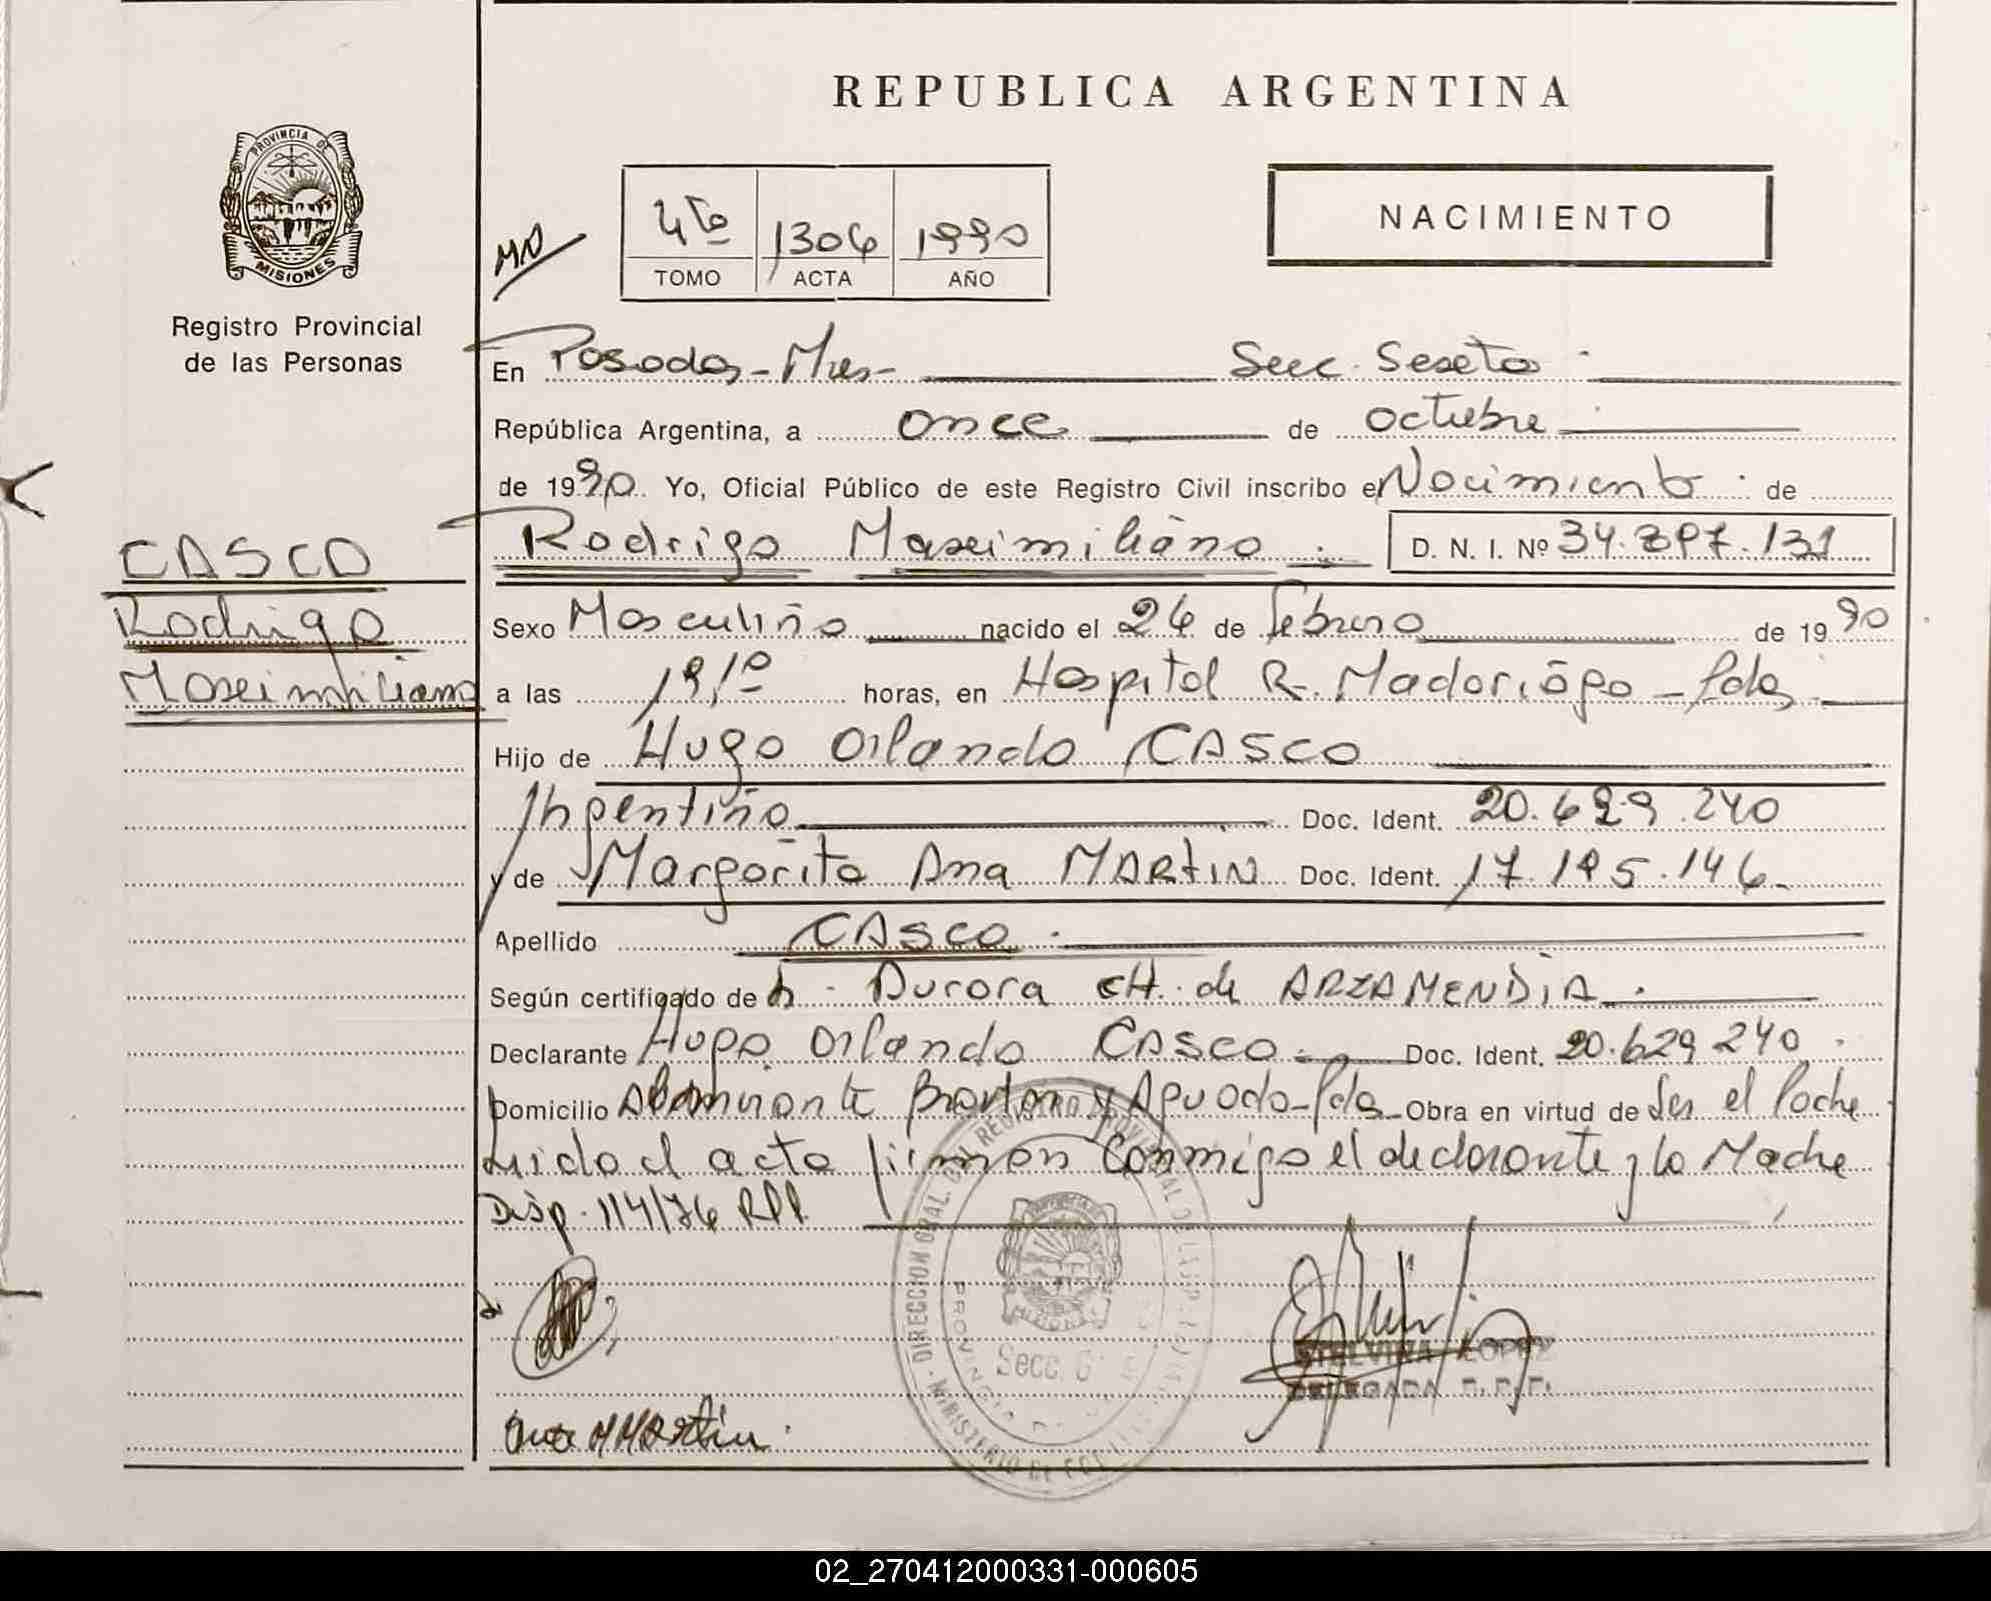 REPUBLICA ARGENTINA
PROVINCIA DE
MISIONES
Registro Provincial
de las Personas
4to 1304 1990
TOMO ACTA AÑO
NACIMIENTO
En Posadas - Mnes - Secc. Sexta
República Argentina, a once de octubre
de 1990. Yo, Oficial Público de este Registro Civil inscribo el Nacimiento de
CASCO
Rodrigo
Maximiliano
Rodrigo Maximiliano D. N. I. Nº 34.897.131
Sexo Masculino nacido el 26 de febrero de 1990
a las 19,10 horas, en Hospital R. Madariaga - Pdas
Hijo de Hugo Orlando CASCO
Argentino Doc. Ident. 20.629.240
y de Margarita Ana MARTIN Doc. Ident. 17.195.146
Apellido CASCO
Según certificado de Aurora CH. de ARZAMENDIA
Declarante Hugo Orlando CASCO Doc. Ident. 20.629.240
Domicilio Almirante Brown y Aguado - Pdas Obra en virtud de Ser el Padre
Leido el acta firman conmigo el declarante y la Madre
Disp. 114/76 RPP.
DIRECCION GRAL. DEL REGISTRO PROVINCIAL DE LAS PERSONAS
MINISTERIO DE
Secc. 6
LOPEZ
DELEGADA
Martin
02_270412000331-000605